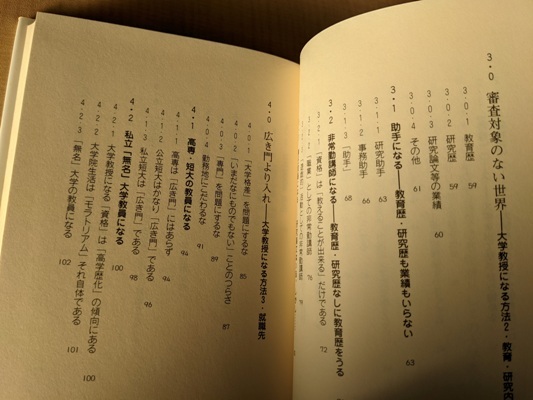 3・0 審査対象のない世界——大学教授になる方法2・教育・研究内
3・0・1 教育歴 59
3・0・2 研究歴 59
3・0・3 研究論文等の業績 60
3・0・4 その他 61
3・1 助手になる——教育歴・研究歴も業績もいらない 63
3・1・1 研究助手 63
3・1・2 事務助手 66
3・1・3 「助手」 68
3・2 非常勤講師になる——教育歴・研究歴なしに教育歴をうる 72
「資格」は「教えることが出来る」だけである
とその非常勤講師 76
その非常勤講師 79
4・0 広き門より入れ——大学教授になる方法3・就職先
4・0・1 「大学格差」を問題にするな 85
4・0・2 「いまだなにものでもない」ことのつらさ 87
4・0・3 「専門」を問題にするな 89
4・0・4 勤務地にこだわるな 91
4・1 高専・短大の教員になる 94
4・1・1 高専は「広き門」にはあらず 94
4・1・2 公立短大はかなり「広き門」である 96
4・1・3 私立短大は「広き門」である 98
4・2 私立「無名」大学教員になる 100
4・2・1 大学教授になる「資格」は「高学歴化」の傾向にある 100
4・2・2 大学院生活は「モラトリアム」それ自体である 101
4・2・3 「無名」大学の教員になる 102